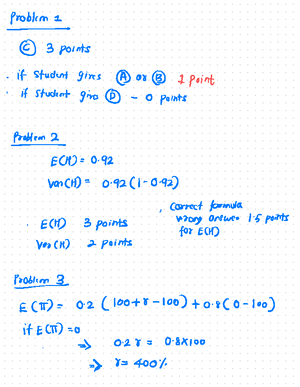 Problem 1
Ⓒ 3 points
. if student gives Ⓐ or Ⓑ 1 point
. if student give Ⓓ - 0 points
Problem 2
E(H) = 0.92
Var(H) = 0.92(1-0.92)
. E(H) 3 points
Var(H) 2 points
, correct formula
wrong answer 1.5 points
for E(H)
Problem 3
E(Π) = 0.2 (100+r-100) + 0.8(0-100)
if E(Π)=0
⇒ 0.2r = 0.8x100
⇒ r = 400%